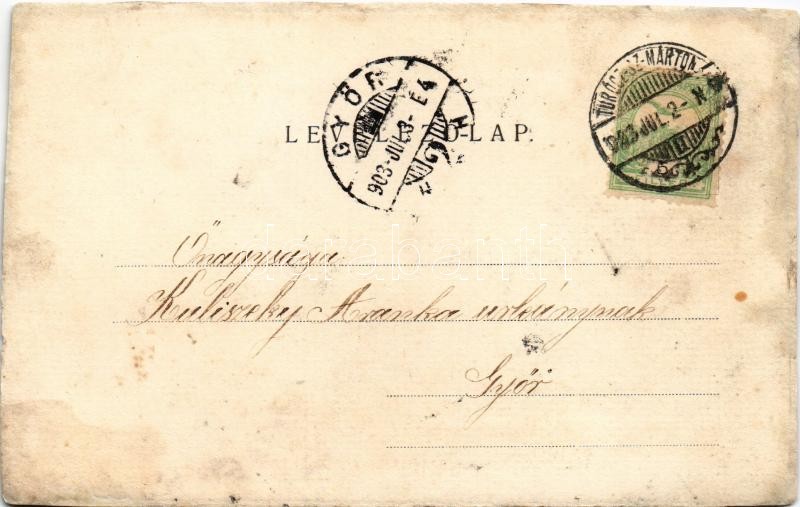 TURÓCZSZT-MÁRTON
903 JUL. 2- N
GYŐR
903-JUL-3- E4
LEVELEZŐ-LAP.
Őnagysága
Kuliszky Aranka urhölgynek
Győr